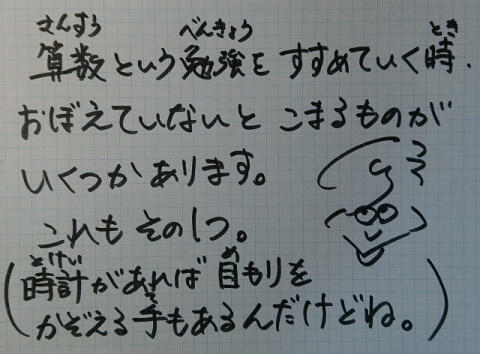 さんすう べんきょう とき
算数という勉強をすすめていく時、
おぼえていないとこまるものが
いくつかあります。
これもその1つ。
とけい め
(時計があれば目もりを
て
かぞえる手もあるんだけどね。)